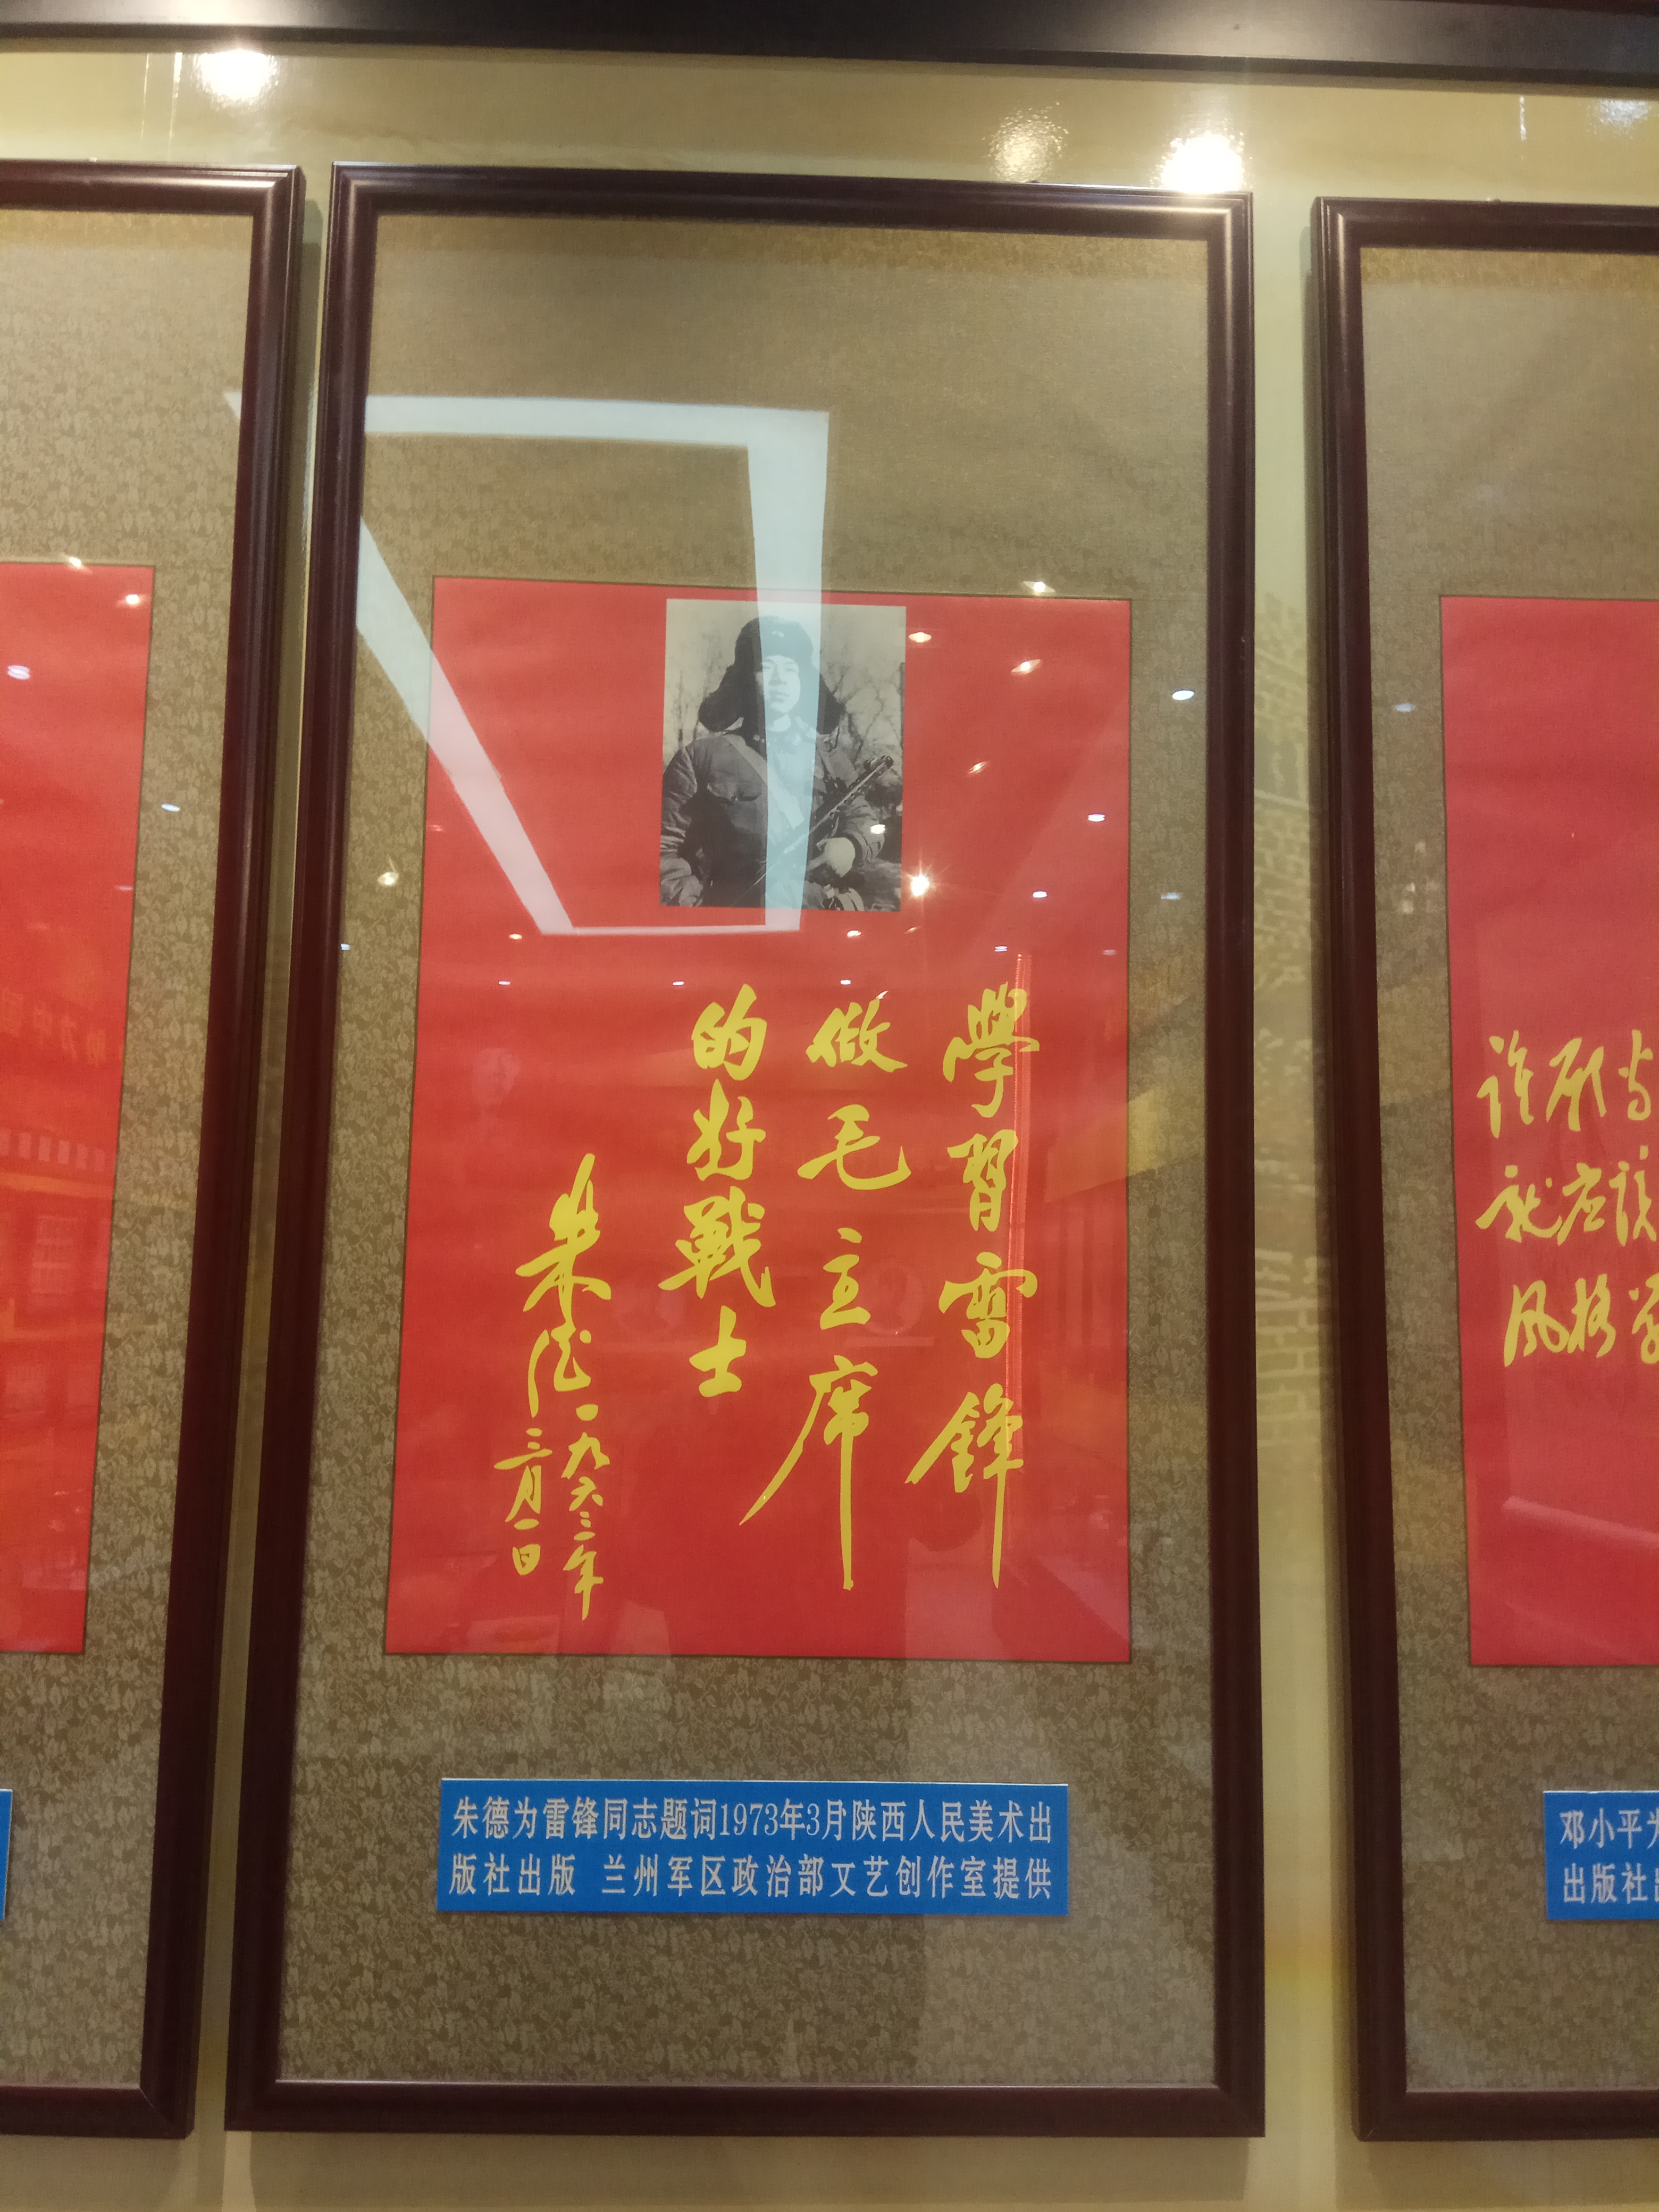 學習雷鋒
做毛主席
的好戰士
朱德
一九六三年
三月一日
朱德为雷锋同志题词1973年3月陕西人民美术出
版社出版 兰州军区政治部文艺创作室提供
谁愿当
就应该
风格
邓小平为
出版社出